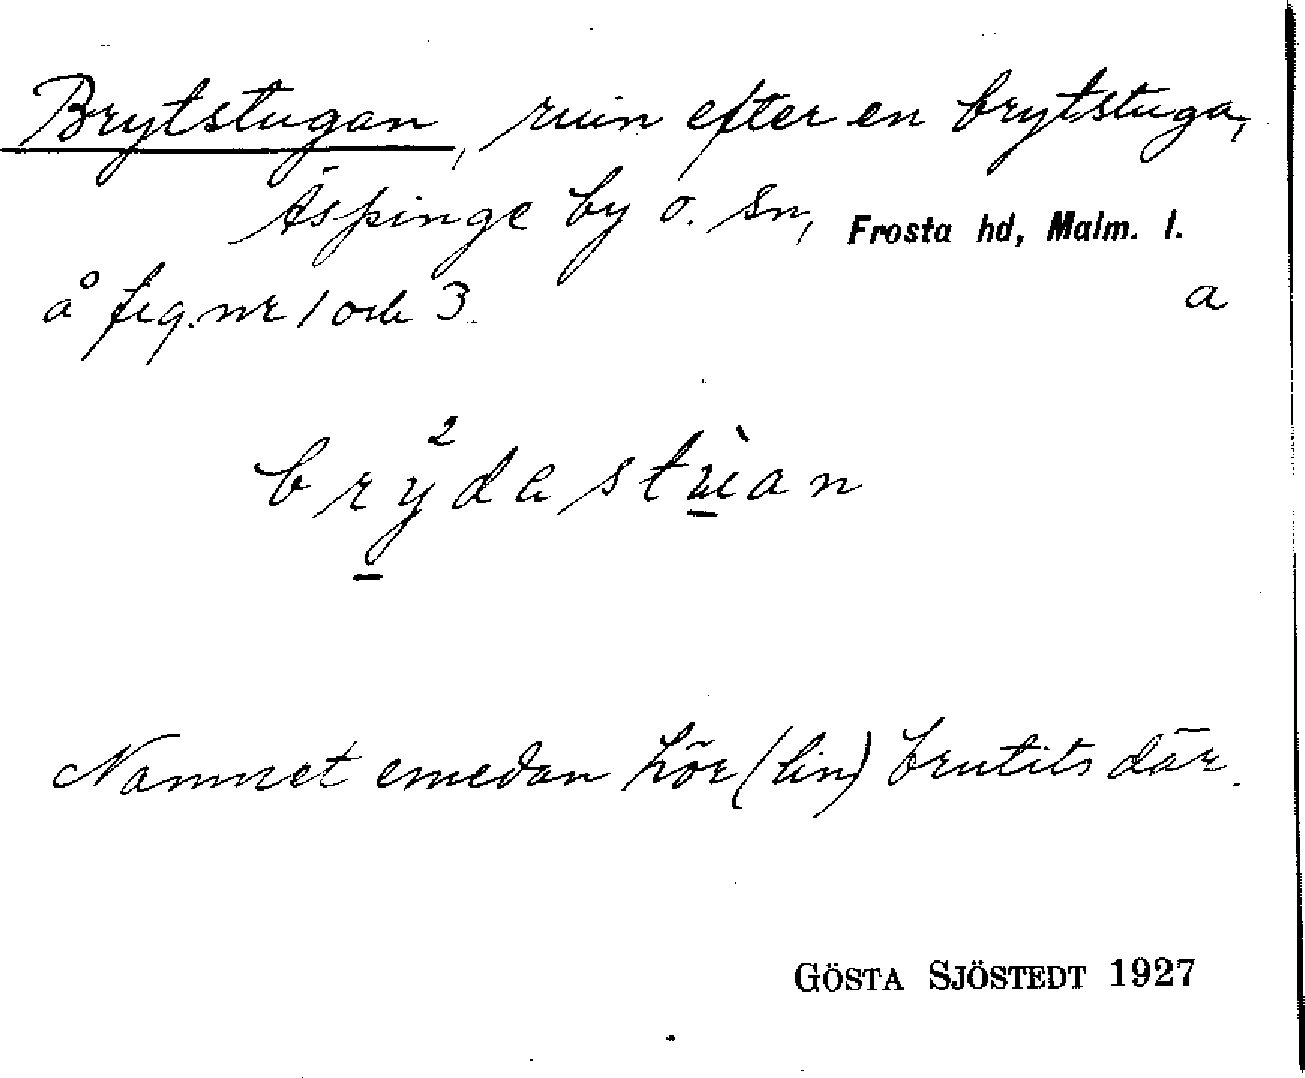 Brytstugan, ruin efter en brytstuga,
Äspinge by o. sn, Frosta hd, Malm. l.
å fig. nr 1 och 3. a
brÿ²dastùan
Namnet emedan hör (lin) brutits där.
GÖSTA SJÖSTEDT 1927